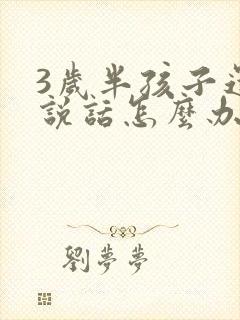 3歲半孩子還
說話怎麼办
劉夢夢